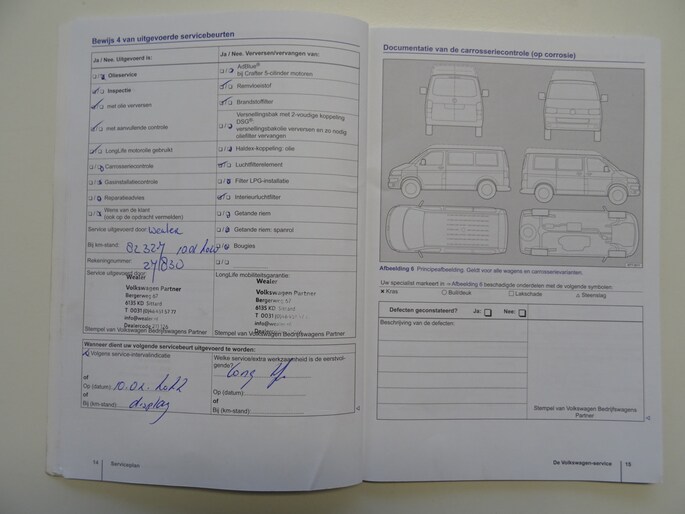 Bewijs 4 van uitgevoerde servicebeurten
Ja / Nee. Uitgevoerd is:
Olieservice
Inspectie
met olie verversen
met aanvullende controle
LongLife motorolie gebruikt
Carrosseriecontrole
Gasinstallatiecontrole
Reparatieadvies
Wens van de klant
(ook op de opdracht vermelden)
Service uitgevoerd door: Wealer
Bij km-stand: 82327
Rekeningnummer:
Service uitgevoerd door:
Wealer
Volkswagen Partner
Bergerweg 67
6135 KD Sittard
Stempel van Volkswagen Bedrijfswagens Partner
Ja / Nee. Verversen/vervangen van:
AdBlue®
bij Crafter 5-cilinder motoren
Remvloeistof
Brandstoffilter
Versnellingsbak met 2-voudige koppeling
DSG®:
versnellingsbakolie verversen en zo nodig
oliefilter vervangen
Haldex-koppeling: olie
Luchtfilterelement
Filter LPG-installatie
Interieurluchtfilter
Getande riem
Getande riem: spanrol
Bougies
LongLife mobiliteitsgarantie:
Wealer
Volkswagen Partner
Bergerweg 67
6135 KD Sittard
Stempel van Volkswagen Bedrijfswagens Partner
Wanneer dient uw volgende servicebeurt uitgevoerd te worden:
Volgens service-intervalindicatie
of
Op (datum): 10.02.2022
of
Bij (km-stand): display
Welke service/extra werkzaamheid is de eerstvol-
gende?
Op (datum):
of
Bij (km-stand):
14 Serviceplan
Documentatie van de carrosseriecontrole (op corrosie)
Afbeelding 6 Principeafbeelding. Geldt voor alle wagens en carrosserievarianten.
Uw specialist markeert in ⇒ Afbeelding 6 beschadigde onderdelen met de volgende symbolen:
× Kras ○ Buil/deuk □ Lakschade △ Steenslag
Defecten geconstateerd? Ja: Nee:
Beschrijving van de defecten:
Stempel van Volkswagen Bedrijfswagens
Partner
De Volkswagen-service 15